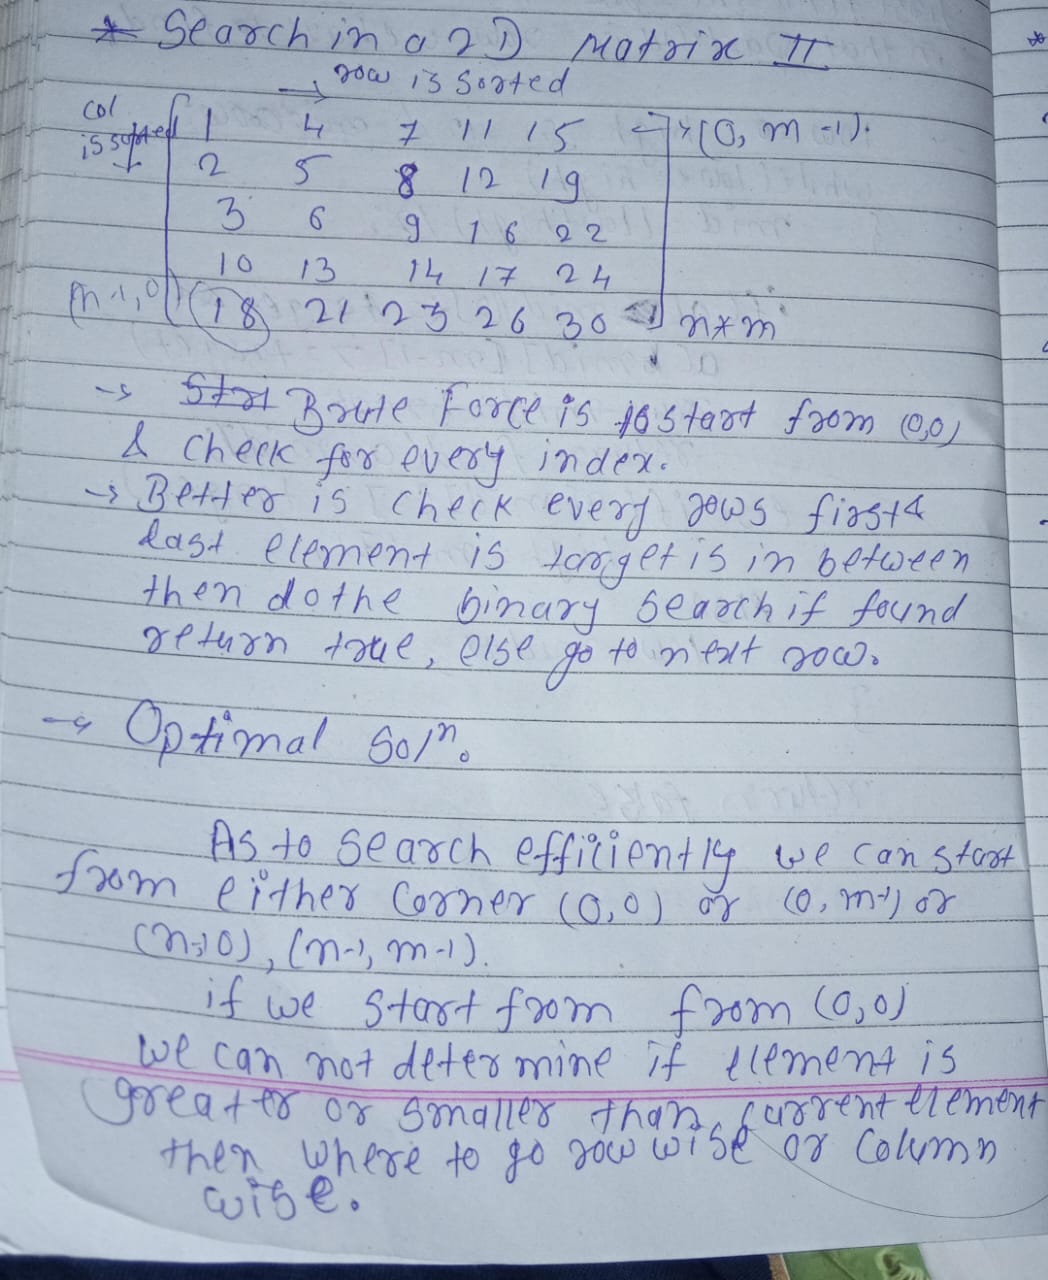 * Search in a 2D Matrix II
→ row is sorted
col
is sorted
1 4 7 11 15 (0, m-1).
2 5 8 12 19
3 6 9 16 22
10 13 14 17 24
(n-1, 0) 18 21 23 26 30 n*m
→ Brute Force is start from (0,0)
& check for every index.
→ Better is check every rows first &
last element is target is in between
then do the binary search if found
return true, else go to next row.
→ Optimal Solⁿ.
As to search efficiently we can start
from either corner (0,0) or (0, m-1) or
(n-1, 0), (n-1, m-1).
if we start from from (0,0)
we can not determine if element is
greater or smaller than current element
then where to go row wise or column
wise.